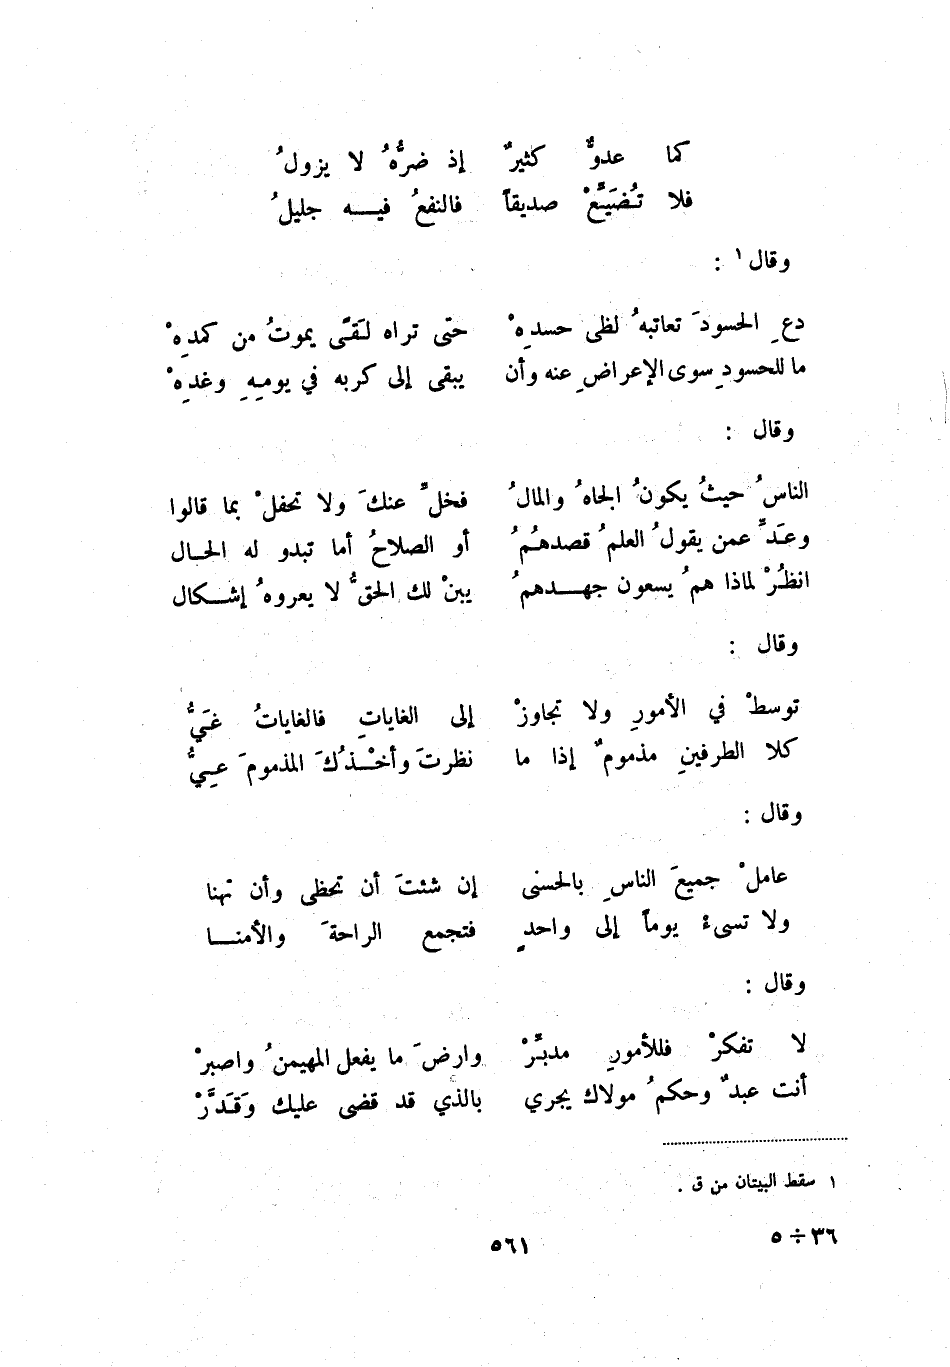 كما عدوٌّ كثيرٌ إذ ضرُّهُ لا يزولُ
فلا تُضَيِّعْ صديقاً فالنفعُ فيـــه جليلُ
وقال ١ :
دعِ الحسودَ تعاتبهُ لظى حسدِهْ حتى تراه لَقىً يموتُ من كمدِهْ
ما للحسودِ سوى الإعراضِ عنه وأن يبقى إلى كربه في يومِهِ وغدِهْ
وقال :
الناسُ حيثُ يكونُ الجاهُ والمالُ فخلِّ عنكَ ولا تحفلْ بما قالوا
وعَدِّ عمن يقولُ العلمُ قصدهُمُ أو الصلاحُ أما تبدو له الحـال
انظُرْ لماذا همُ يسعون جهـــدهمُ يبنْ لك الحقُّ لا يعروهُ إشـــكال
وقال :
توسطْ في الأمورِ ولا تجاوزْ إلى الغاياتِ فالغاياتُ غَيُّ
كلا الطرفينِ مذمومٌ إذا ما نظرتَ وأخْـــذُكَ المذمومَ عِـيُّ
وقال :
عاملْ جميعَ الناسِ بالحسنى إن شئتَ أن تحظى وأن تهنا
ولا تسىءْ يوماً إلى واحدٍ فتجمع الراحةَ والأمنـــا
وقال :
لا تفكرْ فللأمورِ مدبِّرْ وارضَ ما يفعل المهيمنُ واصبرْ
أنت عبدٌ وحكمُ مولاك يجري بالذي قد قضى عليك وَقَدَّرْ
١ سقط البيتان من ق .
٣٦ ÷ ٥
٥٦١